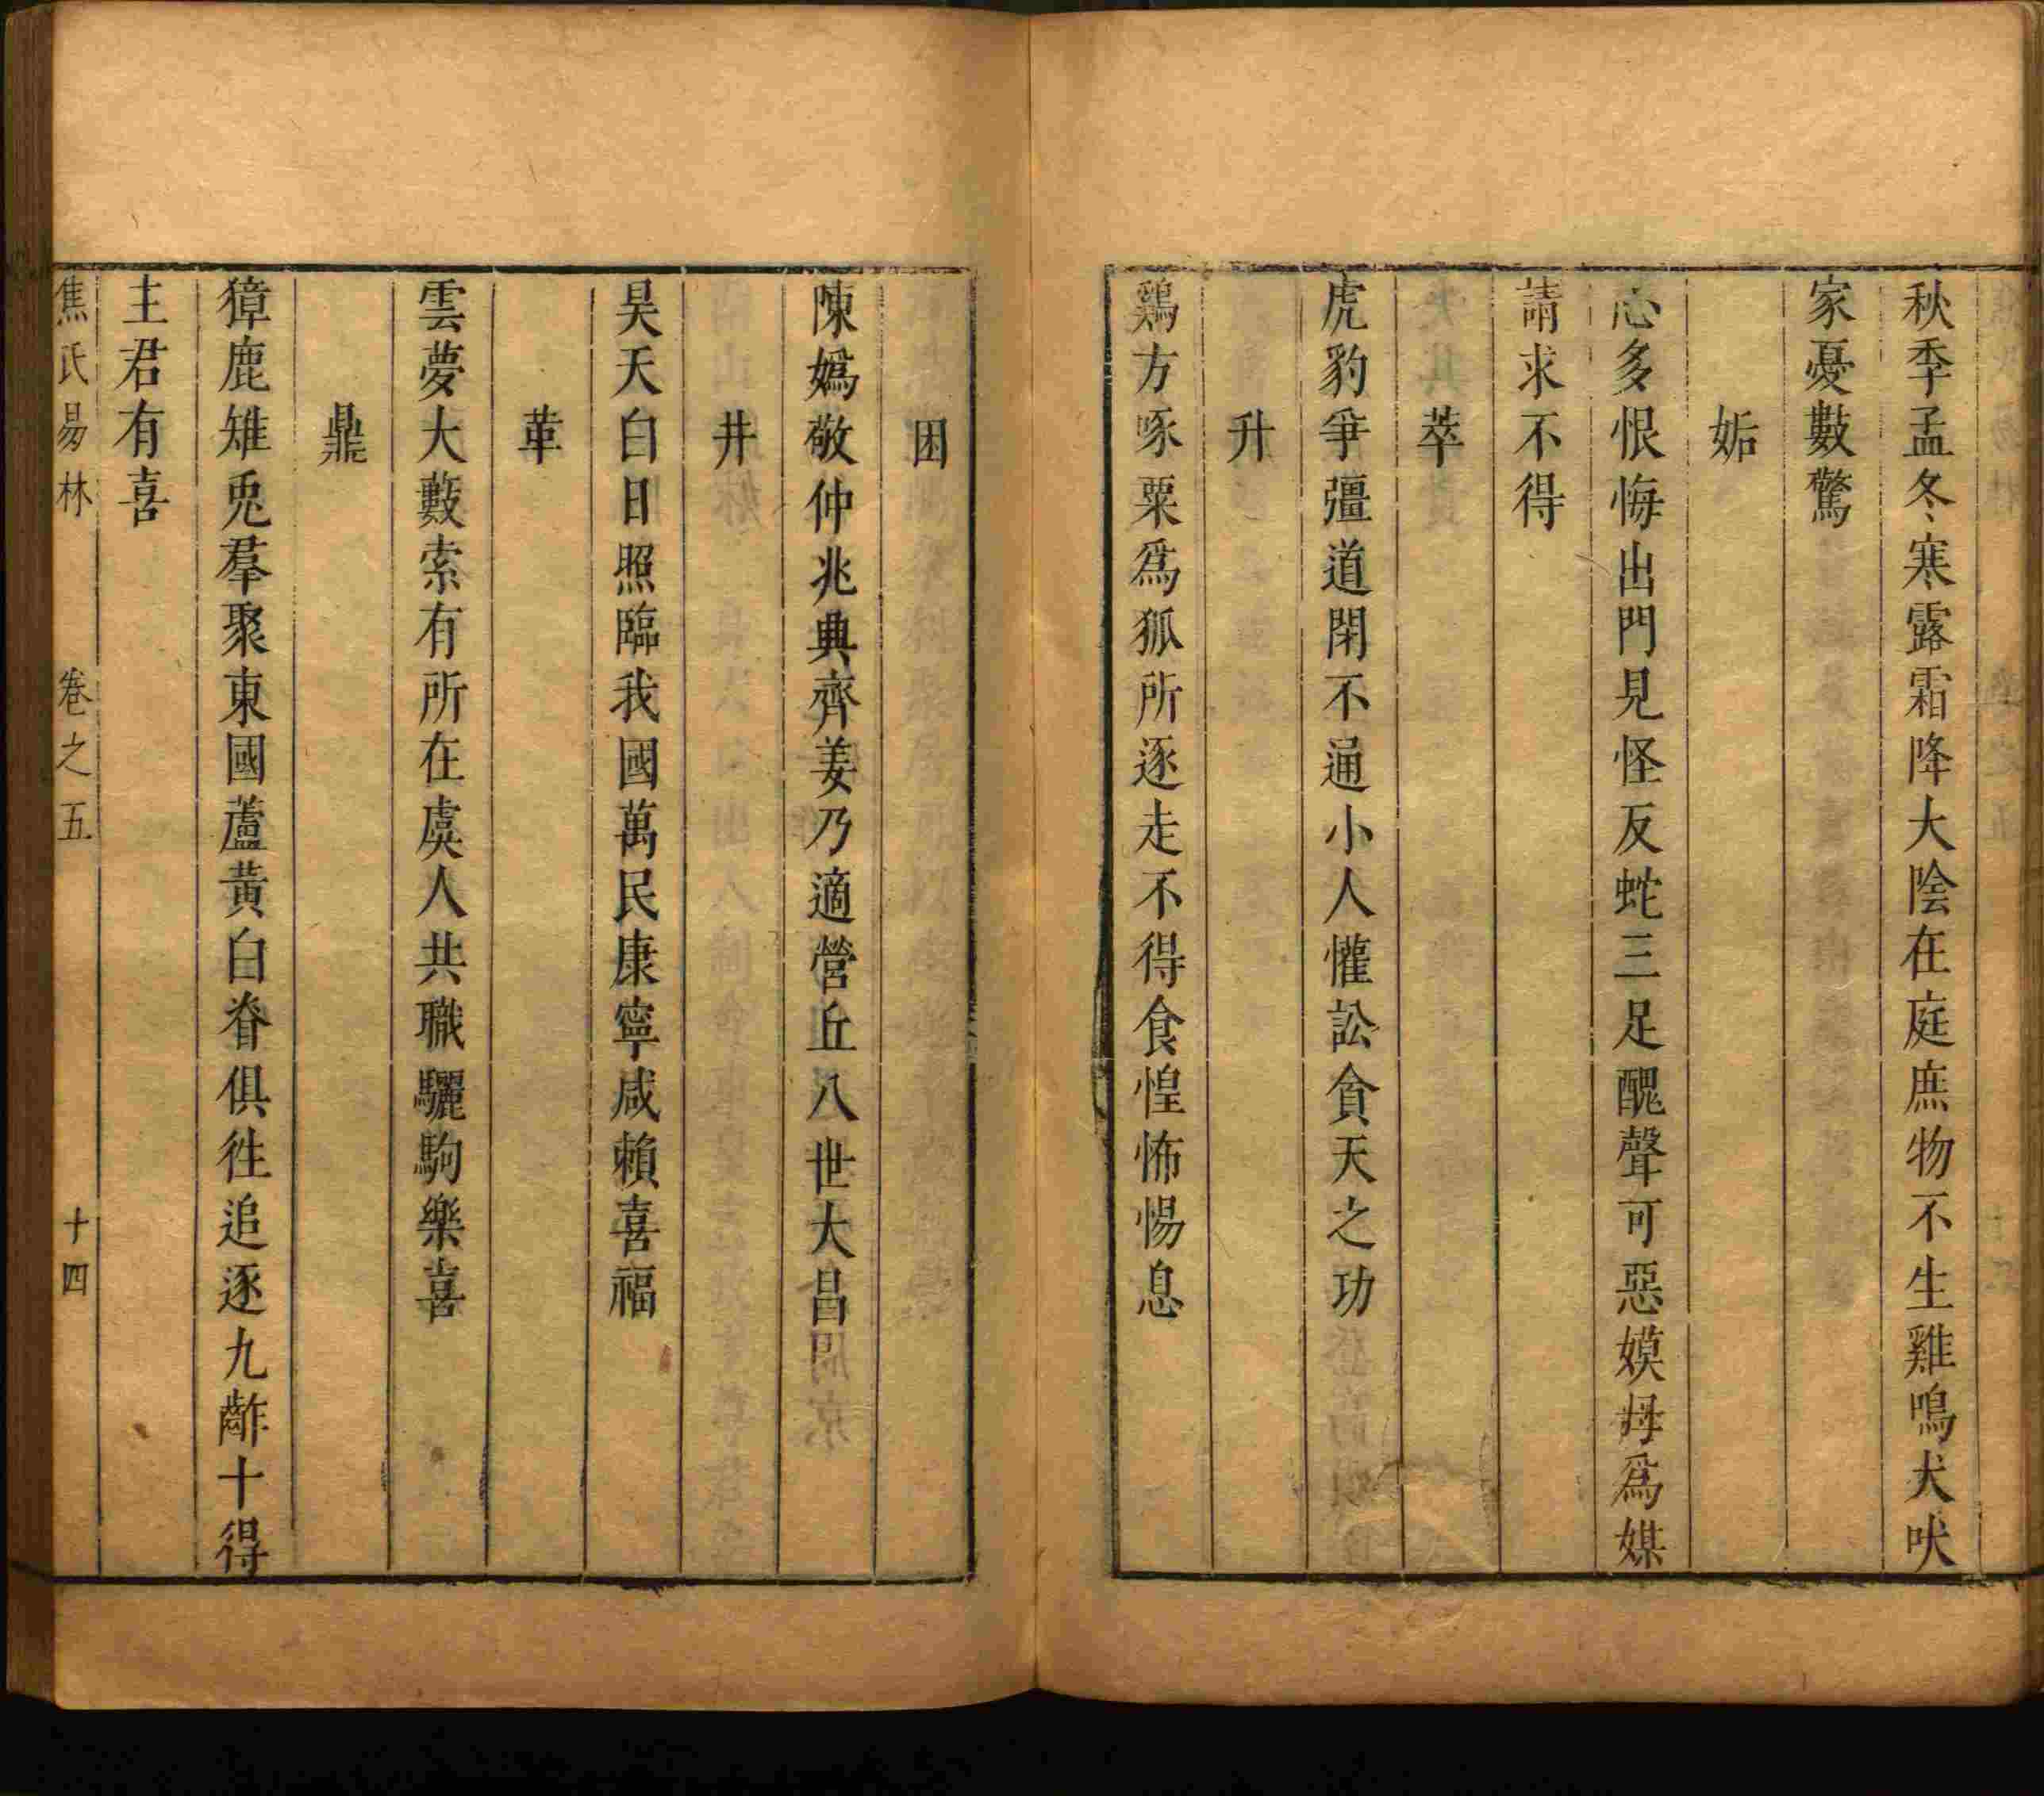 秋季孟冬寒露霜降大陰在庭庶物不生雞鳴犬吠
家憂數驚
姤
心多恨悔出門見怪反蛇三足醜聲可惡嫫母爲媒
請求不得
萃
虎豹爭彊道閉不通小人懽訟貪天之功
升
鷄方啄粟爲狐所逐走不得食惶怖惕息
困
陳嬀敬仲兆興齊姜乃適營丘八世大昌
井
昊天白日照臨我國萬民康寧咸賴喜福
革
雲夢大藪索有所在虞人共職驪駒樂喜
鼎
獐鹿雉兎羣聚東國蘆黃白脊俱往追逐九齚十得
主君有喜
焦氏易林 卷之五 十四